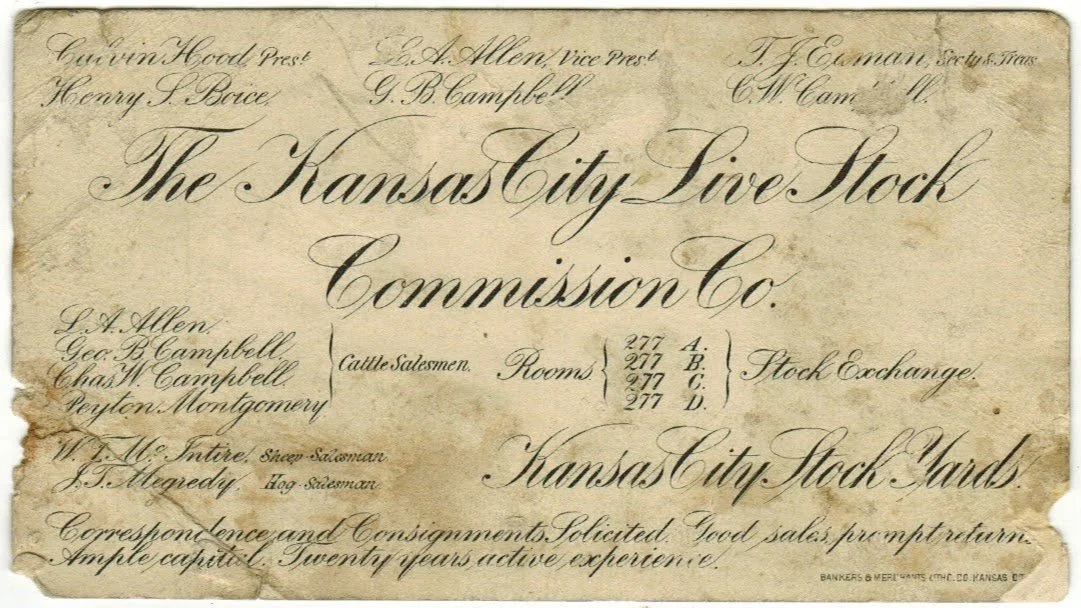 Calvin Hood, Prest. L. A. Allen, Vice Prest. T. J. Eaman, Secty & Treas.
Henry S. Boice, G. B. Campbell C. W. Campbell.
The Kansas City Live Stock
Commission Co.
L. A. Allen,
Geo. B. Campbell,
Chas. W. Campbell,
Peyton Montgomery
Cattle Salesmen.
Rooms 277 A.
277 B.
277 C.
277 D.
Stock Exchange.
W. T. Mc Intire, Sheep Salesman
J. T. Megredy, Hog Salesman
Kansas City Stock Yards.
Correspondence and Consignments Solicited. Good sales, prompt return
Ample capital. Twenty years active experience.
BANKERS & MERCHANTS LITHO. CO. KANSAS